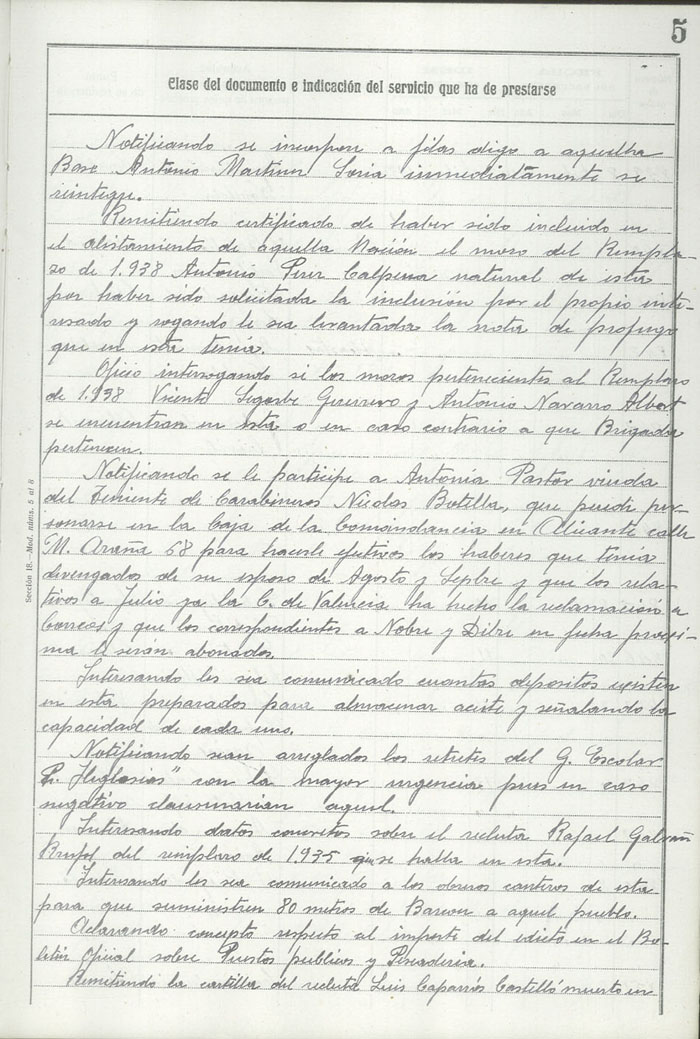 5
Clase del documento e indicación del servicio que ha de prestarse
Notificando se incorpore a filas digo a aquella
Base Antonio Martinez Soria inmediatamente se
reintegre.
Remitiendo certificado de haber sido incluido en
el alistamiento de aquella Nación el mozo del Rempla-
zo de 1.938 Antonio Perez Calpena natural de esta
por haber sido solicitada la inclusión por el propio inte-
resado y rogando le sea levantada la nota de profugo
que en esta tenia.
Oficio interrogando si los mozos pertenecientes al Remplazo
de 1.938 Vicente Segarbe Guerrero y Antonio Navarro Albert
se encuentran en esta o en caso contrario a que Brigada
pertenecen.
Notificando se le participe a Antonia Pastor viuda
del Teniente de Carabineros Nicolas Botella, que puede per-
sonarse en la Caja de la Comandancia en Alicante calle
M. Azaña 68 para hacerle efectivos los haberes que tenia
devengados de su esposo de Agosto y Sepbre y que los rela-
tivos a Julio ya la C. de Valencia ha hecho la reclamación a
Correos y que los correspondientes a Nobre y Dibre en fecha proxi-
ma le seran abonados.
Interesando les sea comunicado cuantos depositos existen
en esta preparados para almacenar aceite y señalando la
capacidad de cada uno.
Notificando sean arreglados los retretes del G. Escolar
P. Iglesias" con la mayor urgencia pues en caso
negativo clausurarian aquel.
Interesando datos concretos sobre el recluta Rafael Galvañ
del remplazo de 1.935 que se halla en esta.
Interesando les sea comunicado a los obreros canteros de esta
para que suministren 80 metros de a aquel pueblo.
Aclarando concepto respecto al importe del edicto en el Bo-
letin Oficial sobre Puestos publicos y Pescaderia.
Remitiendo la cartilla del recluta Luis Caparrós Castelló muerto en
Sección 18.—Mod. núms. 5 al 8